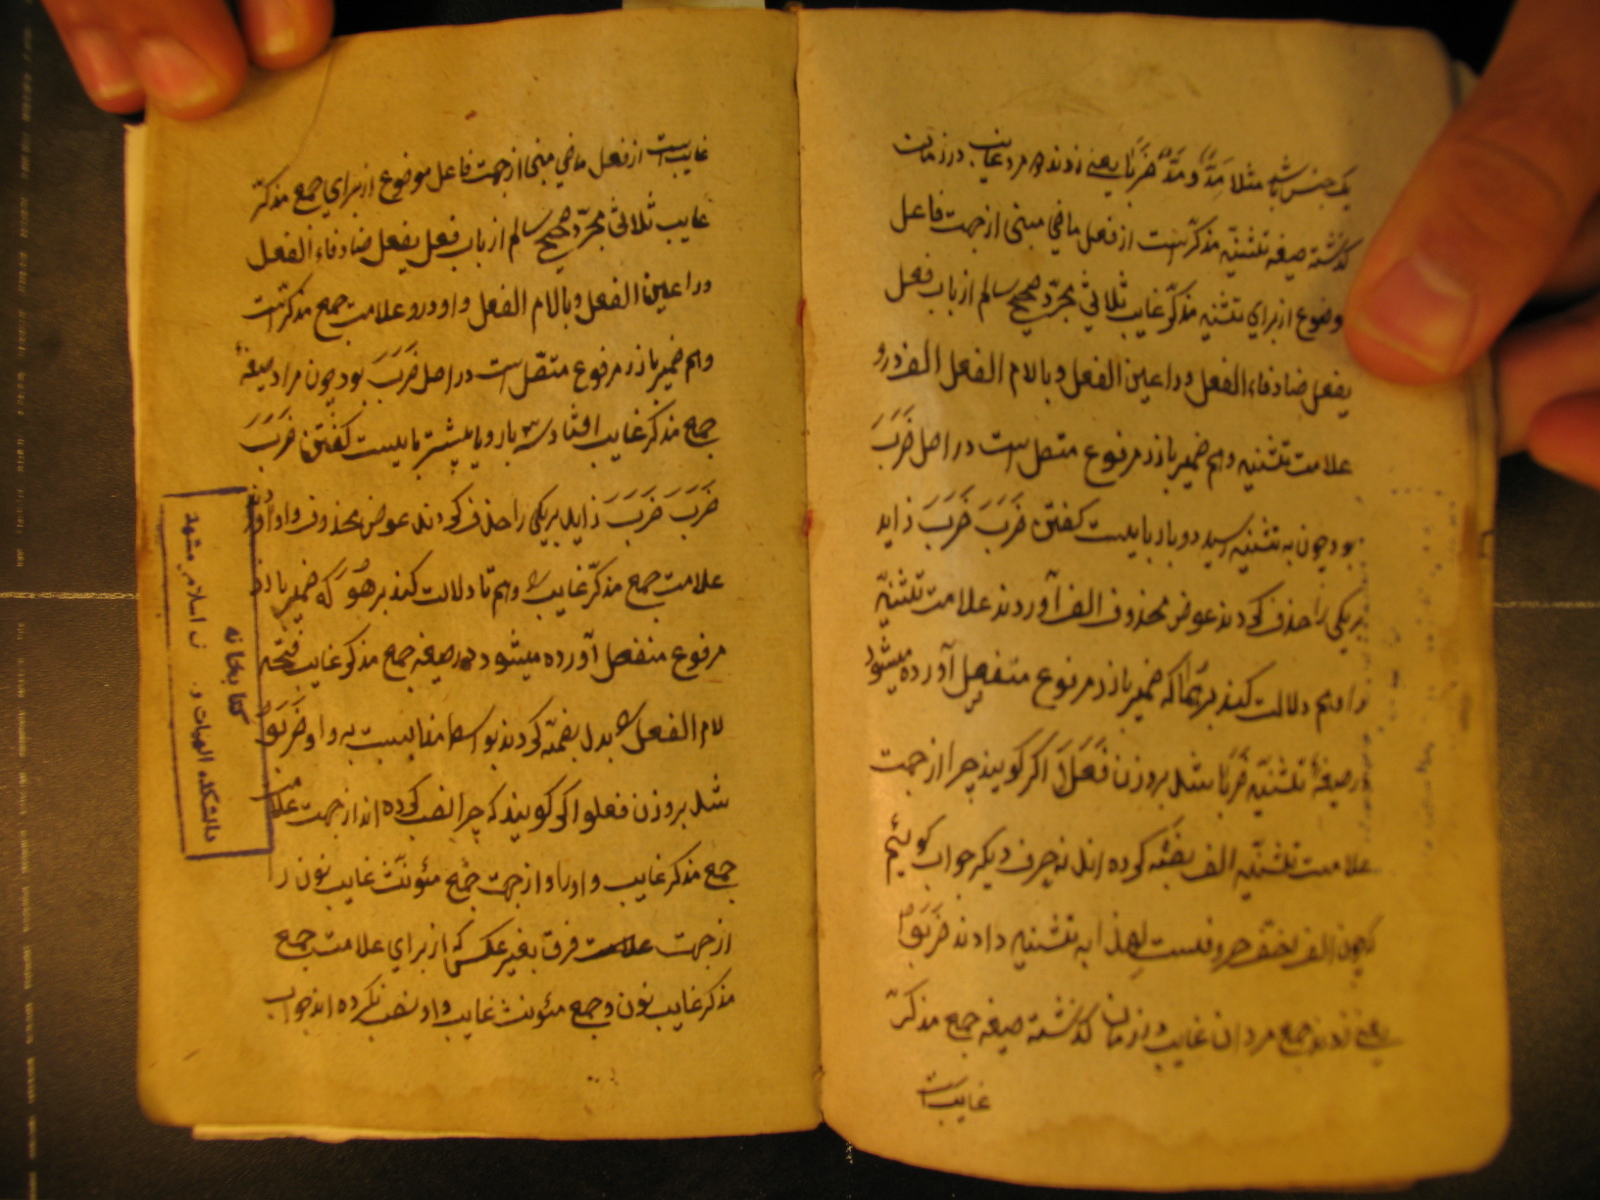 یک جنس باشد مثلا مَدَّ و مَدَّ ضَرَبَا یعنی زدند دو مرد غایب در زمان
گذشته صیغه تثنیه مذکر است از فعل ماضی مبنی از جهت فاعل
موضوع از برای تثنیه مذکر غایب ثلاثی مجرّد صحیح سالم از باب فعل
یفعل ضاد فاء الفعل و را عین الفعل و با لام الفعل الف درو
علامت تثنیه و هم ضمیر بارز مرفوع متصل است در اصل ضَرَبَ
بود چون به تثنیه رسید دو بار بایست گفتن ضَرَبَ ضَرَبَ زاید
بریکی را حذف کردند عوض محذوف الف آوردند علامت تثنیه
را و هم دلالت کند بر هما که ضمیر بارز مرفوع منفصل آورده میشود
در صیغهٔ تثنیه ضَرَبَا شد بر وزن فَعَلَا اگر گویند چرا از جهت
علامت تثنیه الف کرده اند نه حرف دیگر جواب گوئیم
که چون الف اخف حروفست لهذا به تثنیه دادند ضَرَبُوا
یعنی زدند جمع مردان غایب در زمان گذشته صیغه جمع مذکّر
غایب است
غایب است از فعل ماضی مبنی از جهت فاعل موضوع از برای جمع مذکّر
غایب ثلاثی مجرّد صحیح سالم از باب فعل یفعل ضاد فاء الفعل
و را عین الفعل و با لام الفعل واو درو علامت جمع مذکّر است
و هم ضمیر بارز مرفوع متصل است در اصل ضَرَبَ بود چون مراد صیغهٔ
جمع مذکر غایب افتاد سه بار و یا بیشتر بایست گفتن ضَرَبَ
ضَرَبَ ضَرَبَ زاید بریکی را حذف کردند عوض محذوف واو آوردند
علامت جمع مذکّر غایب و هم تا دلالت کند بر هُوَ که ضمیر بارز
مرفوع منفصل آورده میشود در صیغه جمع مذکر غایب فتحه
لام الفعل بدل بضمّه کردند بواسطه مناسبت به واو ضَرَبُوا
شد بر وزن فعلوا اگر گویند که چرا نصب کرده اند از جهت علامت
جمع مذکر غایب واو را و از جهت جمع مؤنّث غایب نون را
از جهت فرق بغیر عکس که از برای علامت جمع
مذکر غایب نون و جمع مئونث غایب واو نصب نکرده اند جواب
کتابخانه
دانشکده الهیات و اسلامی مشهد